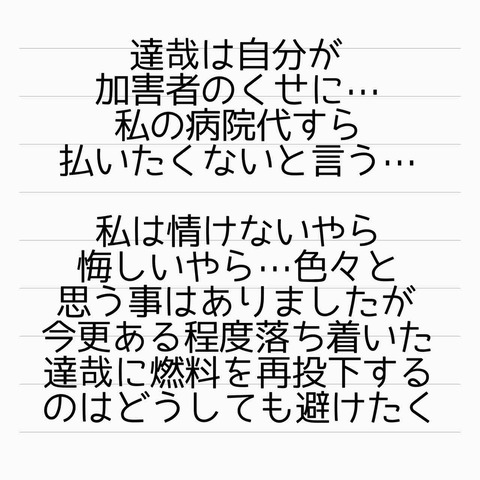 達哉は自分が
加害者のくせに…
私の病院代すら
払いたくないと言う…
私は情けないやら
悔しいやら…色々と
思う事はありましたが
今更ある程度落ち着いた
達哉に燃料を再投下する
のはどうしても避けたく